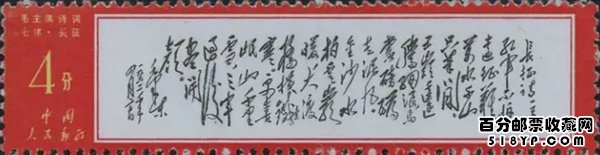 毛主席诗词
七律·长征
4分
中国
人民邮政
红军不怕
远征难
万水千山
只等闲
五岭逶迤
腾细浪乌
蒙磅礴
走泥丸
金沙水
拍云崖
暖大渡
桥横铁索
寒更喜
岷山千里
雪三军
过后
尽开
颜
毛泽东
百分邮票收藏网
518YP.com